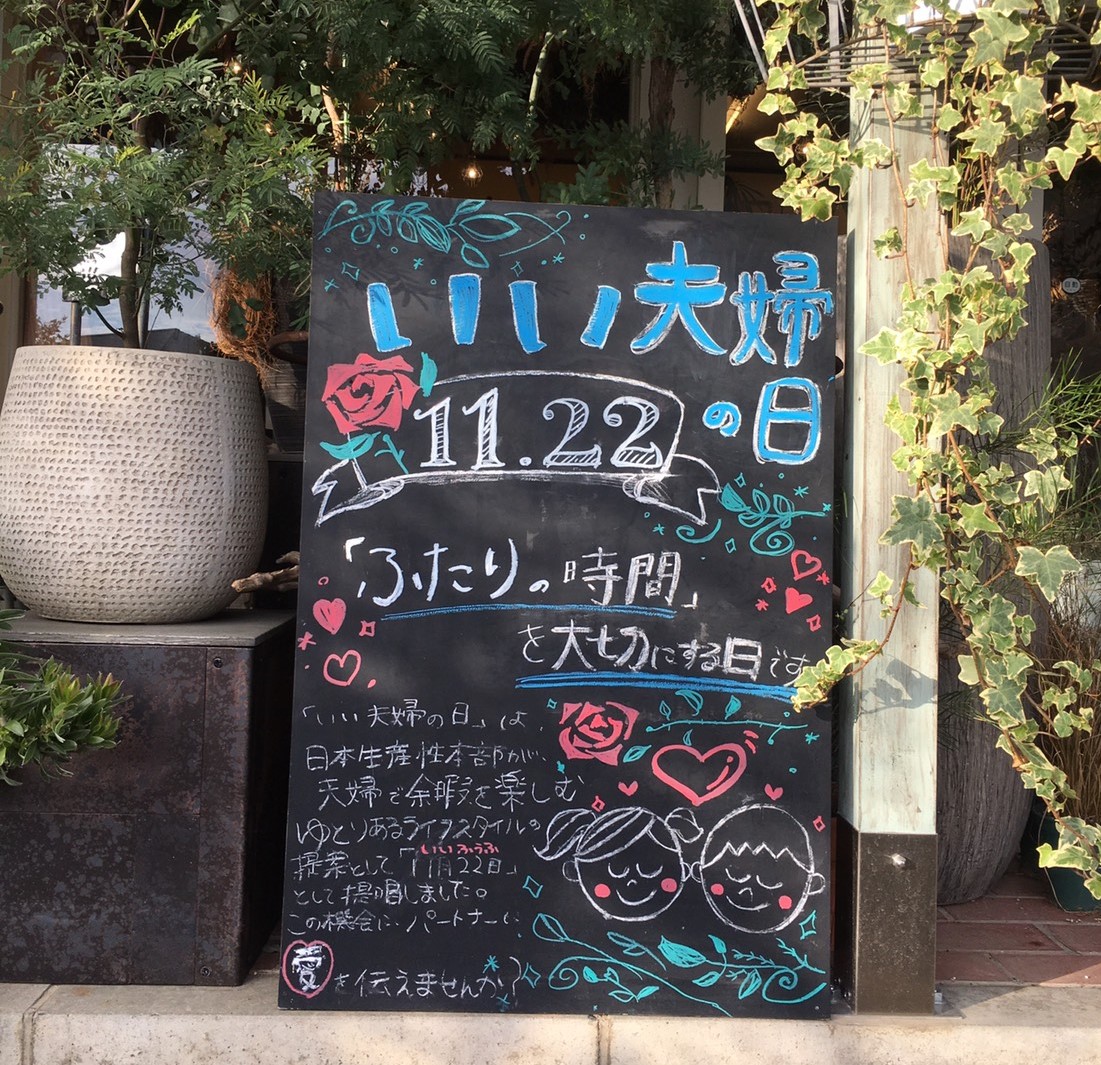 いい夫婦
の日
11.22
「ふたりの時間」
を大切にする日です
「いい夫婦の日」は、
日本生産性本部が、
夫婦で余暇を楽しむ
ゆとりあるライフスタイルの
いいふうふ
提案として「11月22日」
として提唱しました。
この機会に、パートナーに
愛を伝えませんか?